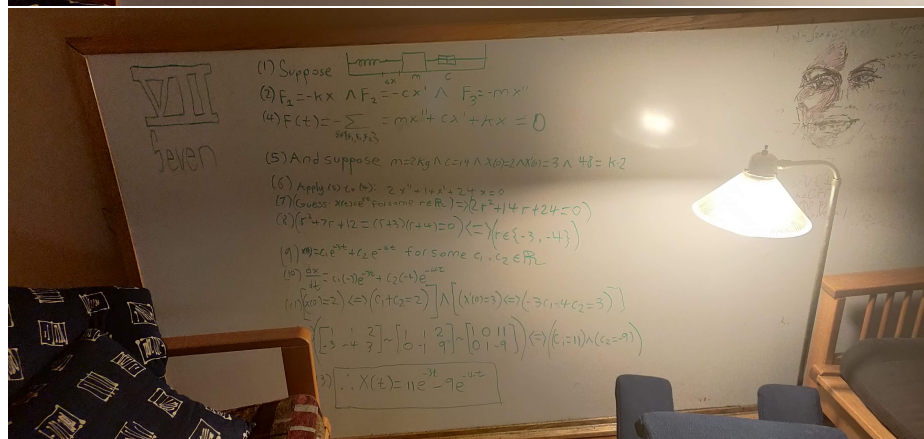 VII
Seven
(1) Suppose
Δx m c
(2) F₁=-kx ∧ F₂=-cx' ∧ F₃=-mx''
(4) F(t)=-∑ =mx''+cx'+kx=0
(5) And suppose m=2kg ∧ c=14 ∧ x(0)=2 ∧ x'(0)=3 ∧ 48=k·2
(6) Apply (5) to (4): 2x''+14x'+24x=0
(7) (Guess x(t)=e^rt for some r∈ℝ)=>(2r²+14r+24=0)
(8) (r²+7r+12=(r+3)(r+4)=0)<=>(r∈{-3,-4})
(9) x(t)=c₁e^-3t+c₂e^-4t for some c₁,c₂∈ℝ
(10) dx/dt=c₁(-3)e^-3t+c₂(-4)e^-4t
[(x(0)=2)<=>(c₁+c₂=2)]∧[(x'(0)=3)<=>(-3c₁-4c₂=3)]
([1 1 2 -3 -4 3]~[1 1 2 0 -1 9]~[1 0 11 0 1 -9])<=>(c₁=11)∧(c₂=-9)
3) ∴ x(t)=11e^-3t-9e^-4t